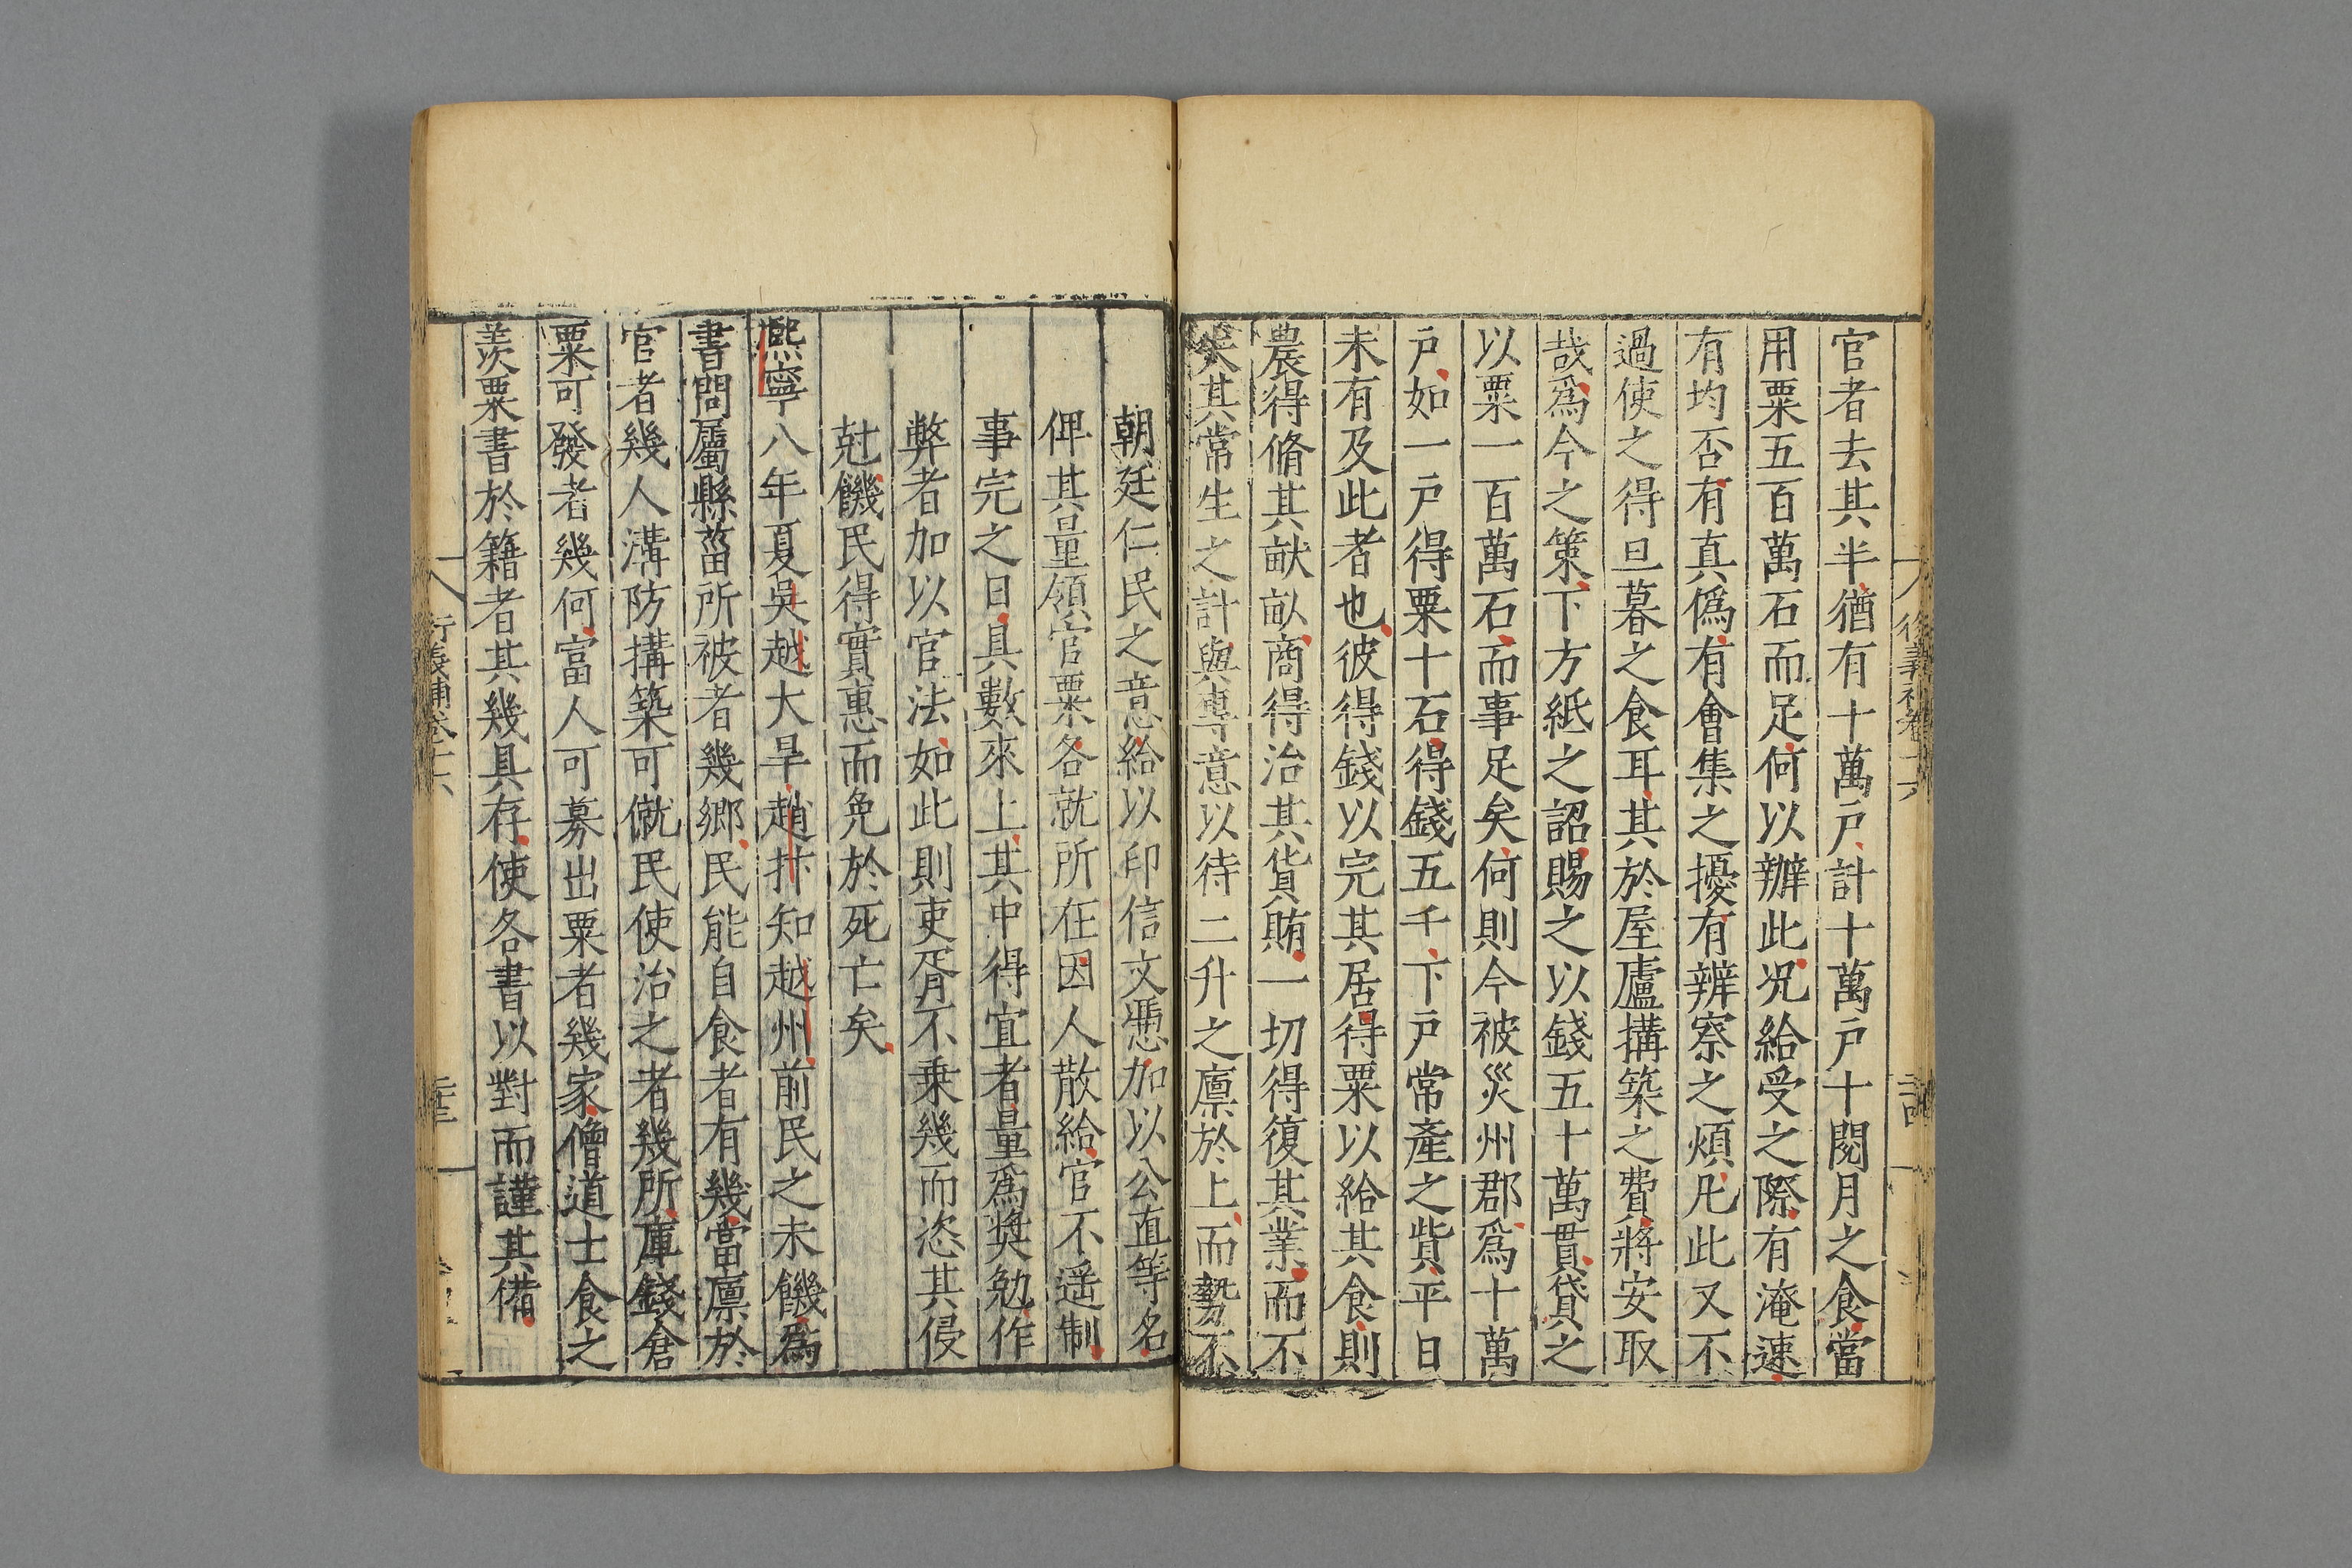 官者去其半猶有十萬戸計十萬戸十閱月之食當
用粟五百萬石而足何以辦此况給受之際有淹速
有均否有真僞有會集之擾有辨察之煩凡此又不
過使之得旦暮之食耳其於屋廬搆築之費將安取
哉爲今之策下方紙之詔賜之以錢五十萬貫貸之
以粟一百萬石而事足矣何則今被災州郡爲十萬
戸如一戸得粟十石得錢五千下戸常產之貲平日
未有及此者也彼得錢以完其居得粟以給其食則
農得脩其畎畝商得治其貨賄一切得復其業而不
失其常生之計與專意以待二升之廪於上而勢不
朝廷仁民之意給以印信文憑加以公直等名
俾其量領官粟各就所在因人散給官不遥制
事完之日具數來上其中得宜者量爲奬勉作
弊者加以官法如此則吏胥不乗幾而恣其侵
尅饑民得實惠而免於死亡矣
熈寧八年夏吳越大旱趙抃知越州前民之未饑爲
書問屬縣菑所被者幾鄉民能自食者有幾當廪於
官者幾人溝防搆築可僦民使治之者幾所庫錢倉
粟可發者幾何富人可募出粟者幾家僧道士食之
羡粟書於籍者其幾具存使各書以對而謹其備
衍義補卷十六